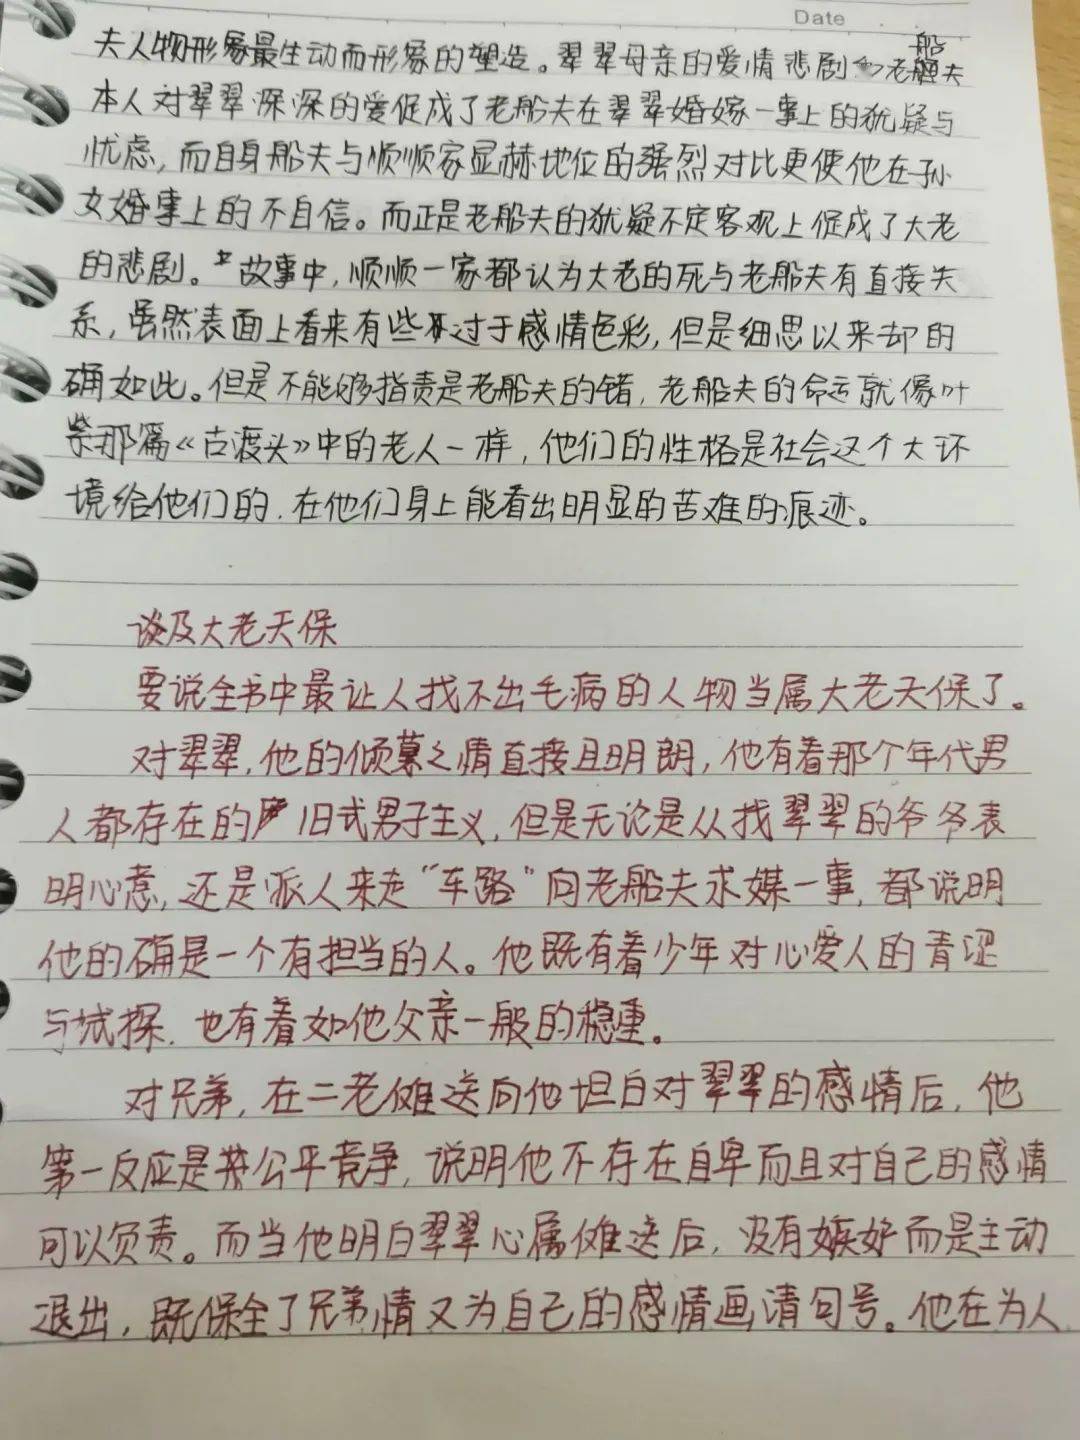 Date
夫人物形象最生动而形象的塑造。翠翠母亲的爱情悲剧 老船夫
本人对翠翠深深的爱促成了老船夫在翠翠婚嫁一事上的犹疑与
忧虑,而自身船夫与顺顺家显赫地位的强烈对比更使他在孙
女婚事上的不自信。而正是老船夫的犹疑不定客观上促成了大老
的悲剧。故事中,顺顺一家都认为大老的死与老船夫有直接关
系,虽然表面上看来有些过于感情色彩,但是细思以来却的
确如此。但是不能够指责是老船夫的错,老船夫的命运就像叶
紫那篇《古渡头》中的老人一样,他们的性格是社会这个大环
境给他们的.在他们身上能看出明显的苦难的痕迹。
谈及大老天保
要说全书中最让人找不出毛病的人物当属大老天保了。
对翠翠,他的倾慕之情直接且明朗,他有着那个年代男
人都存在的旧式男子主义,但是无论是从找翠翠的爷爷表
明心意,还是派人来走“车路”向老船夫求媒一事,都说明
他的确是一个有担当的人。他既有着少年对心爱人的青涩
与试探.也有着如他父亲一般的稳重。
对兄弟,在二老傩送向他坦白对翠翠的感情后,他
第一反应是公平竞争,说明他不存在自卑而且对自己的感情
可以负责。而当他明白翠翠心属傩送后,没有嫉妒而是主动
退出,既保全了兄弟情又为自己的感情画清句号。他在为人